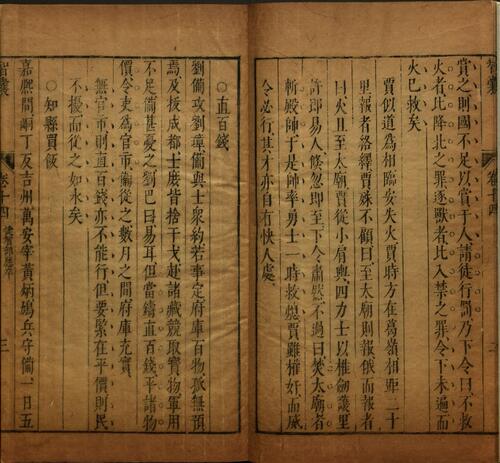 賞之則國不足以賞于人請徒行罰乃下令曰不救
火者比降北之罪逐獸者比入禁之罪令下未遍而
火已救矣
賈似道為相臨安失火賈時方在葛嶺相距二十
里報者絡繹賈殊不顧曰至太廟則報俄而報者
曰火且至太廟賈從小肩輿四力士以椎劍護里
許即易人倏忽即至下令肅然不過曰焚太廟者
斬殿帥于是帥率勇士一時救熄賈雖權奸而威
令必行其才亦自有快人處
智囊
卷十四
三
○直百錢
劉備攻劉璋備與士眾約若事定府庫百物孤無預
焉及拔成都士庶皆捨干戈赴諸藏競取寶物軍用
不足備甚憂之劉巴曰易耳但當鑄直百錢平諸物
價令吏為官市備從之數月之間府庫充實
無官市則直百錢亦不能行但要緊在平價則民
不擾而從之如水矣
○知縣買飯
嘉熙間峒丁反吉州萬安宰黃炳鳩兵守備一日五